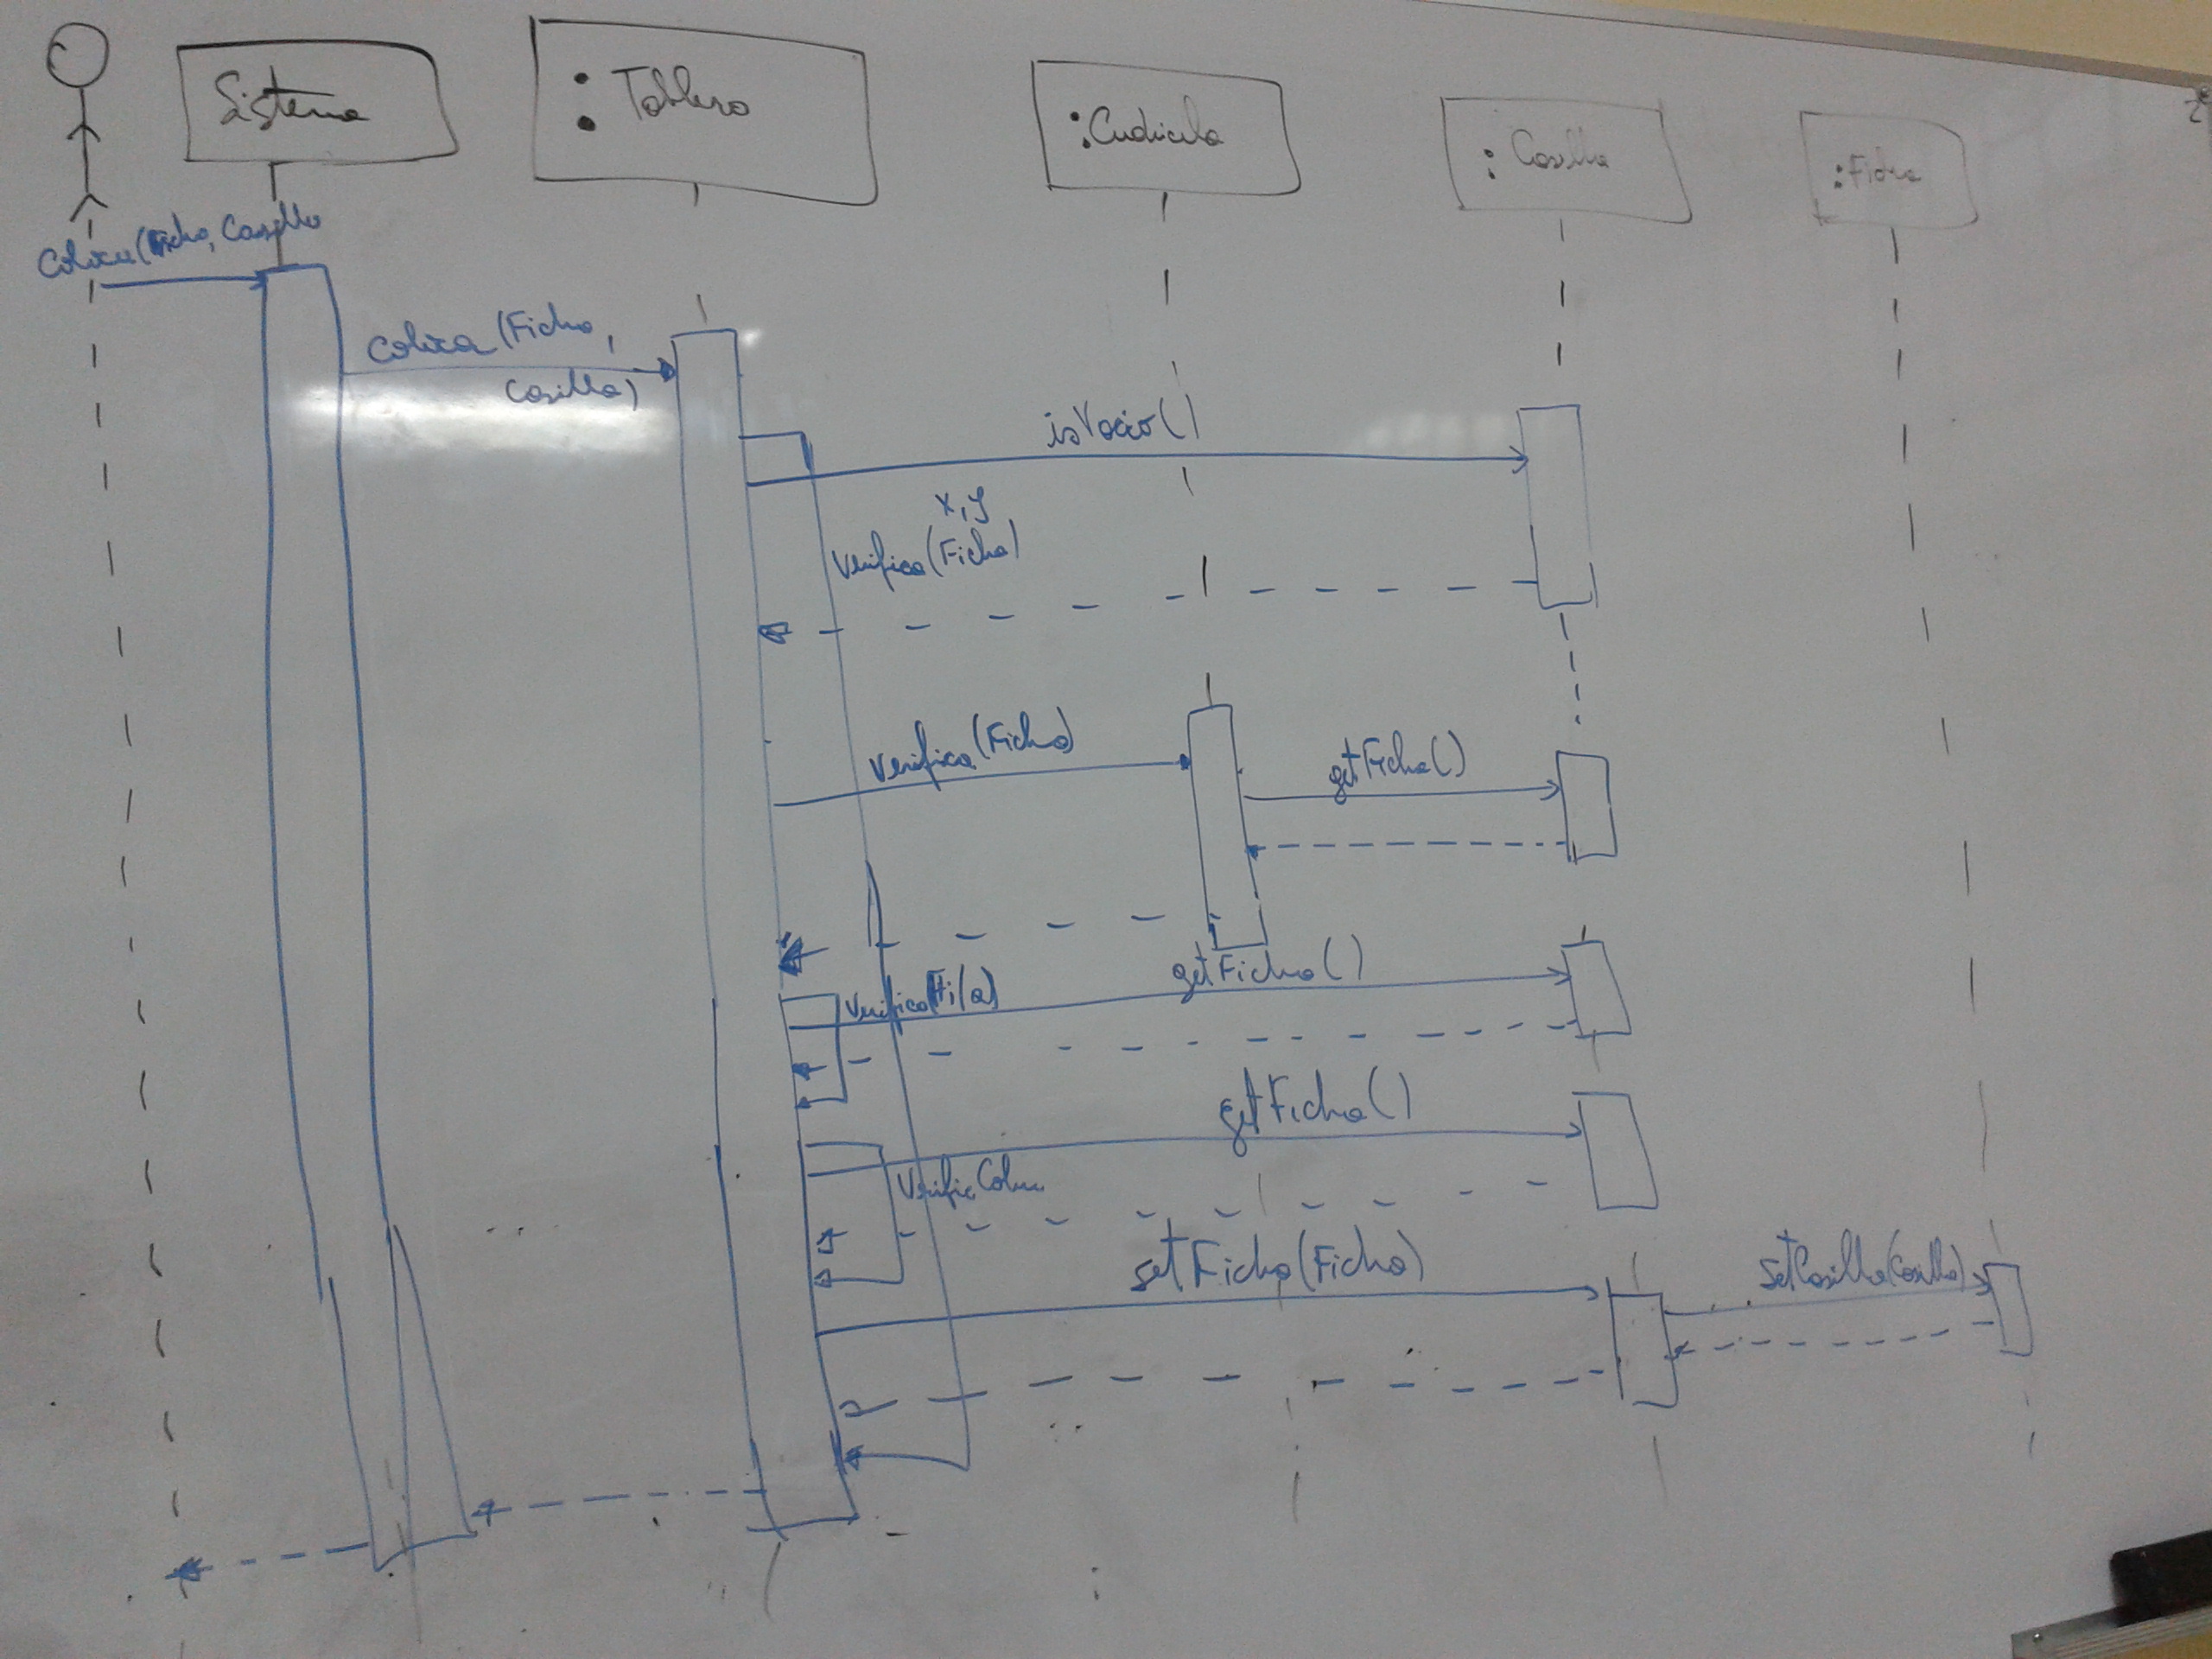 Sistema
: Tablero
:Cuadricula
: Casilla
:Ficha
Coloca(Ficha, Casilla
Coloca (Ficha,
Casilla)
isVacio()
x,y
Verifica(Ficha)
Verifica(Ficha)
getFicha()
getFicha()
Verifica(Fila)
getFicha()
Verific Colu
setFicha(Ficha)
setCasilla(Casilla)